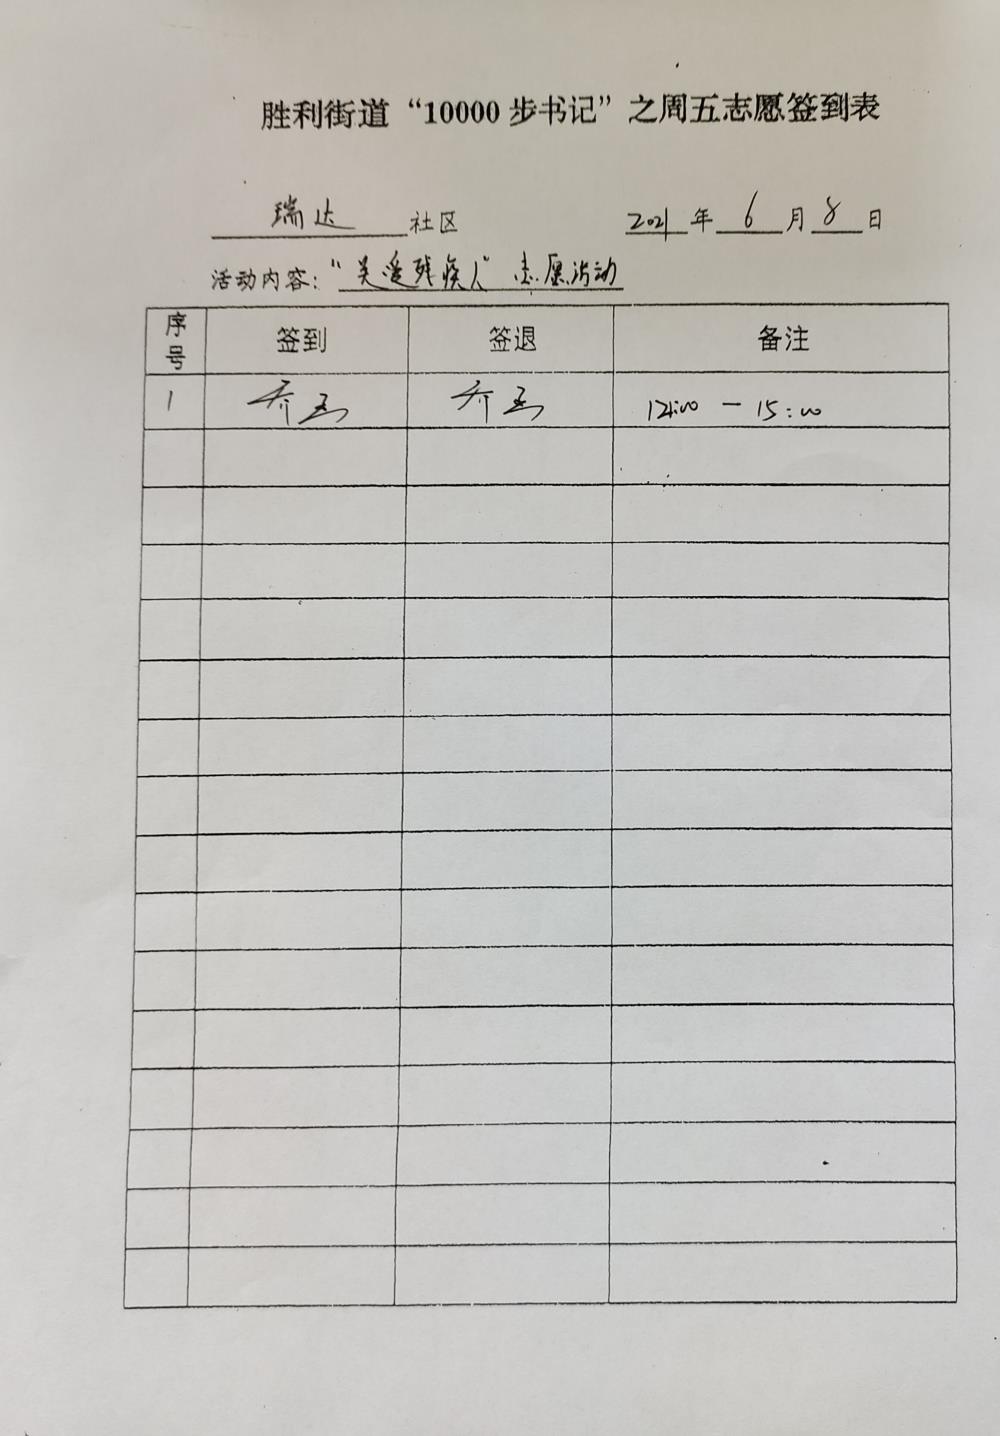 胜利街道“10000步书记”之周五志愿签到表
瑞达 社区 2021 年 6 月 8 日
活动内容：“关爱残疾人”志愿活动
序号 签到 签退 备注
1 乔 乔 12:00 — 15:00